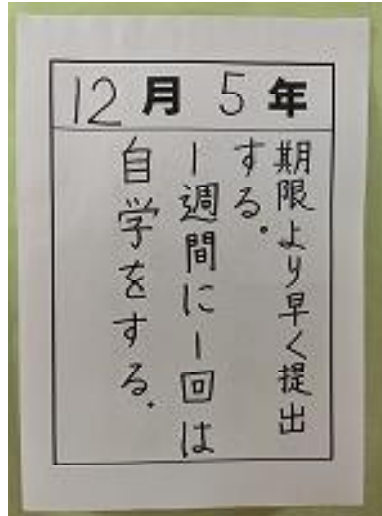 12月 5年
期限より早く提出
する.
1週間に1回は
自学をする.